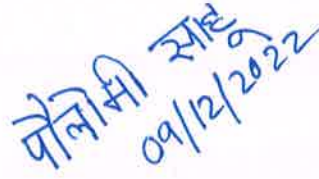 पौलोमी साहू
09/12/2022